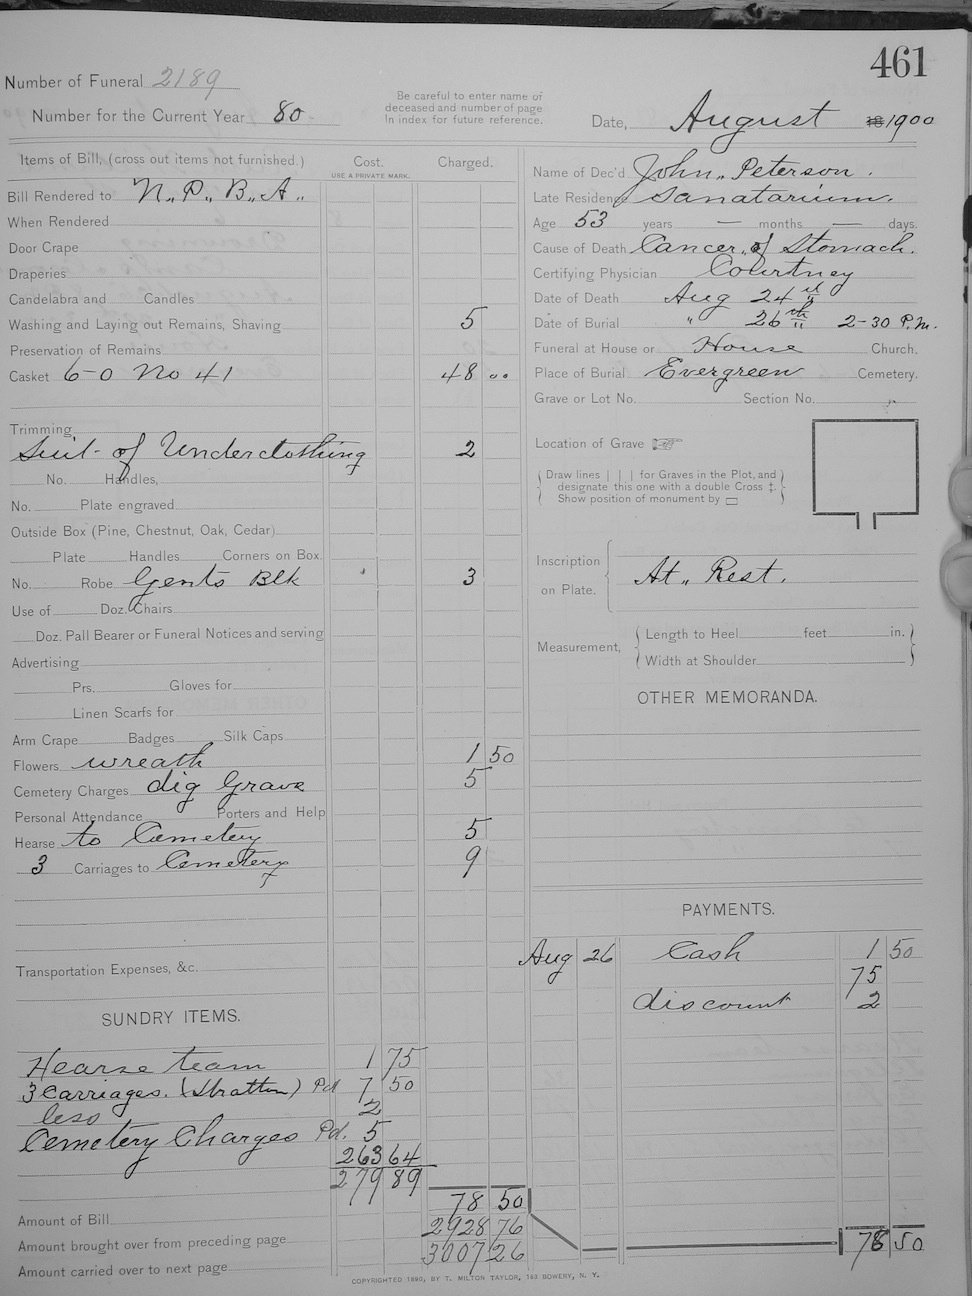 461
Number of Funeral 2189
Number for the Current Year 80
Be careful to enter name of
deceased and number of page
In index for future reference.
Date, August 1900
Items of Bill, (cross out items not furnished.) Cost. Charged.
USE A PRIVATE MARK.
Bill Rendered to N.,P.,B.,A.,
When Rendered
Door Crape
Draperies
Candelabra and Candles
Washing and Laying out Remains, Shaving 5
Preservation of Remains
Casket 6-0 No 41 48 00
Trimming
Suit of Underclothing 2
No. Handles,
No. Plate engraved
Outside Box (Pine, Chestnut, Oak, Cedar)
Plate Handles Corners on Box.
No. Robe Gents Blk 3
Use of Doz. Chairs
Doz. Pall Bearer or Funeral Notices and serving
Advertising
Prs. Gloves for
Linen Scarfs for
Arm Crape Badges Silk Caps
Flowers wreath 1 50
Cemetery Charges dig Grave 5
Personal Attendance Porters and Help
Hearse to Cemetery 5
3 Carriages to Cemetery 9
Transportation Expenses, &c.
SUNDRY ITEMS.
Hearse team 1 75
3 Carriages. (Stratton) Pd 7 50
less 2
Cemetery Charges Pd. 5
263 64
279 89
78 50
Amount of Bill
2928 76
Amount brought over from preceding page
3007 26
Amount carried over to next page
Name of Dec'd John, Peterson.
Late Residence Sanatarium.
Age 53 years — months — days.
Cause of Death Cancer, of Stomach.
Certifying Physician Courtney
Date of Death Aug 24th "
Date of Burial " 26th " 2-30 P.M.
Funeral at House or House Church.
Place of Burial Evergreen Cemetery.
Grave or Lot No. Section No.
Location of Grave ☞
Draw lines | | | for Graves in the Plot, and
designate this one with a double Cross ‡.
Show position of monument by ▭
Inscription
on Plate. At, Rest.
Measurement, Length to Heel feet in.
Width at Shoulder
OTHER MEMORANDA.
PAYMENTS.
Aug 26 Cash 1 50
75
discount 2
78 50
COPYRIGHTED 1890, BY T. MILTON TAYLOR, 163 BOWERY, N. Y.